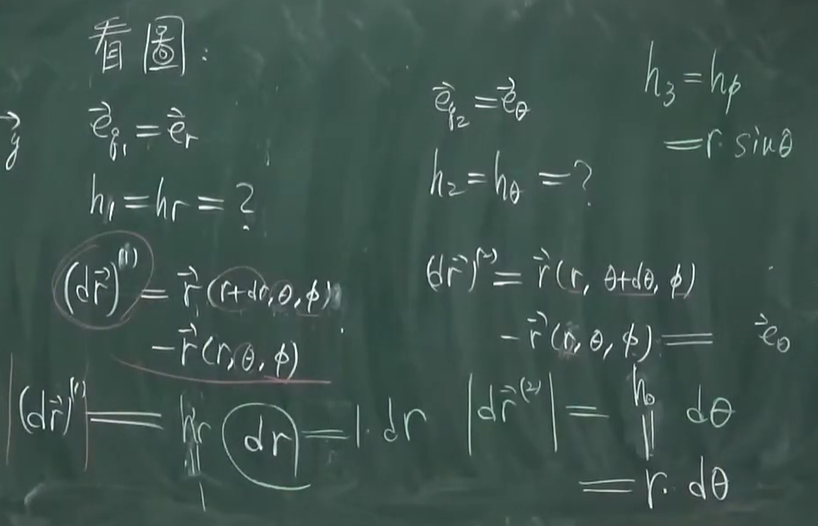 看圖:
\vec{y}
\vec{e}_{q_1} = \vec{e}_r
h_1 = h_r = ?
(d\vec{r})^{(1)} = \vec{r}(r+dr, θ, φ)
-\vec{r}(r, θ, φ)
|(d\vec{r})^{(1)}| = h_r dr = 1. dr
||
1
\vec{e}_{q_2} = \vec{e}_θ
h_2 = h_θ = ?
(d\vec{r})^{(2)} = \vec{r}(r, θ+dθ, φ)
-\vec{r}(r, θ, φ) = \vec{e}_θ
|d\vec{r}^{(2)}| = h_θ dθ
||
= r. dθ
h_3 = h_φ
= r. sinθ